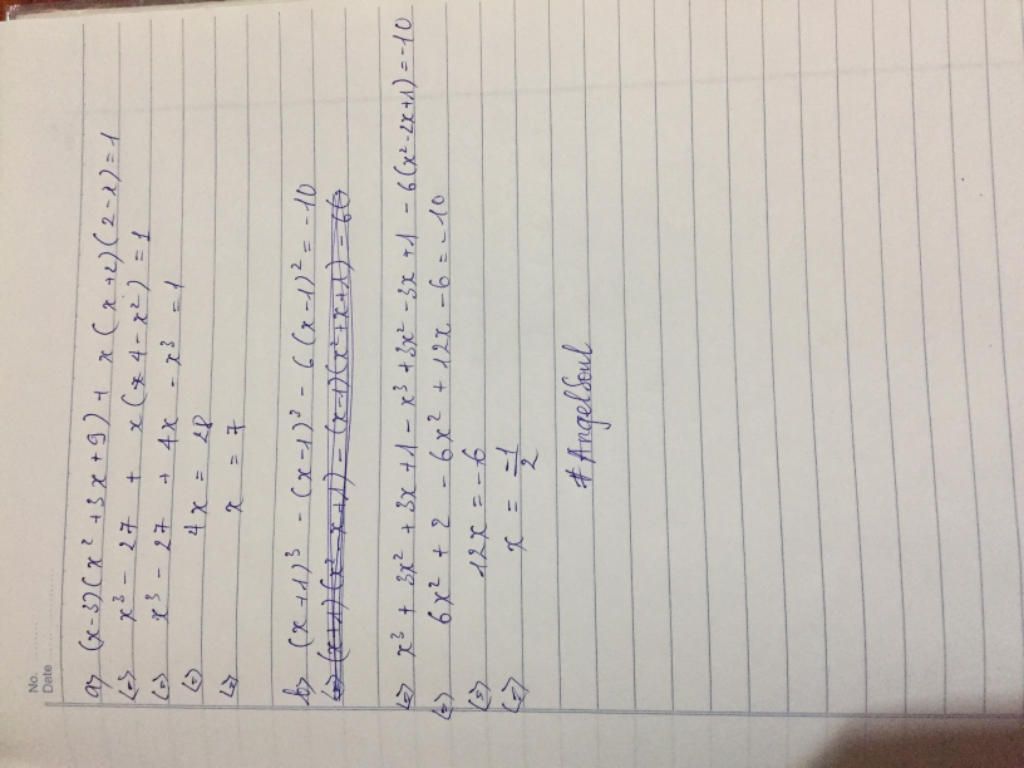 No.
Date
a) (x-3)(x² + 3x + 9) + x(x+2)(2-x) = 1
(=) x³ - 27 + x(4 - x²) = 1
(=) x³ - 27 + 4x - x³ = 1
(=) 4x = 28
(=) x = 7
b) (x+1)³ - (x-1)³ - 6(x-1)² = -10
(=) x³ + 3x² + 3x + 1 - x³ + 3x² - 3x + 1 - 6(x² - 2x + 1) = -10
(=) 6x² + 2 - 6x² + 12x - 6 = -10
(=) 12x = -6
(=) x = -1/2
#AngelSoul